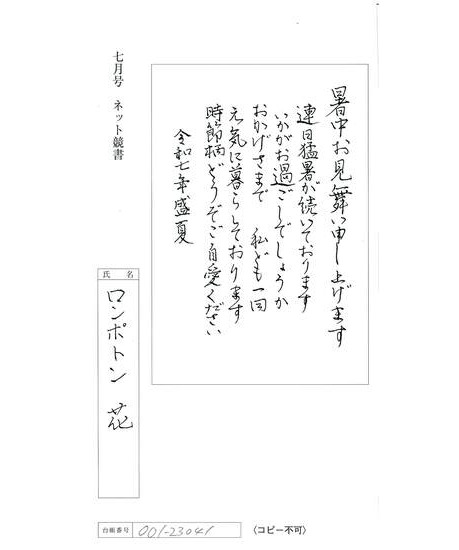 七月号 ネット競書
暑中お見舞い申し上げます
連日猛暑が続いております
いかがお過ごしでしょうか
おかげさまで 私ども一同
元気に暮らしております
時節柄どうぞご自愛ください
令和七年盛夏
氏名
ロンポトン 花
台紙番号 001-23041
〈コピー不可〉